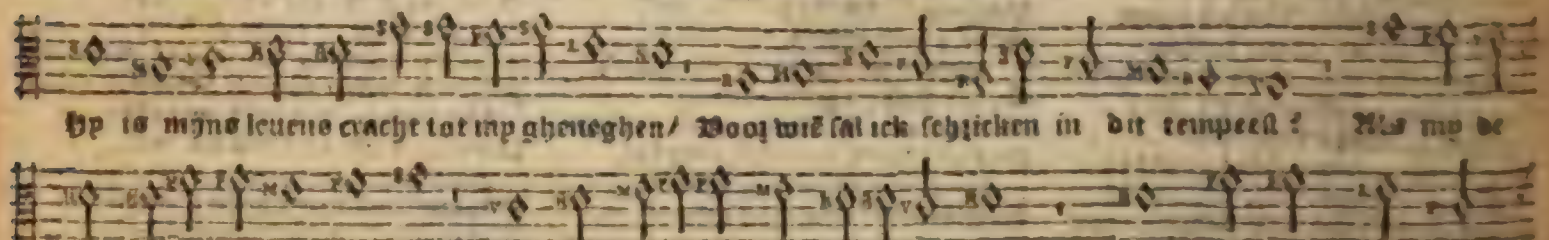 Hy is mijns leuens cracht tot my gheneghen/ Voor wiē sal ick schricken in dit tempeest? Als my de